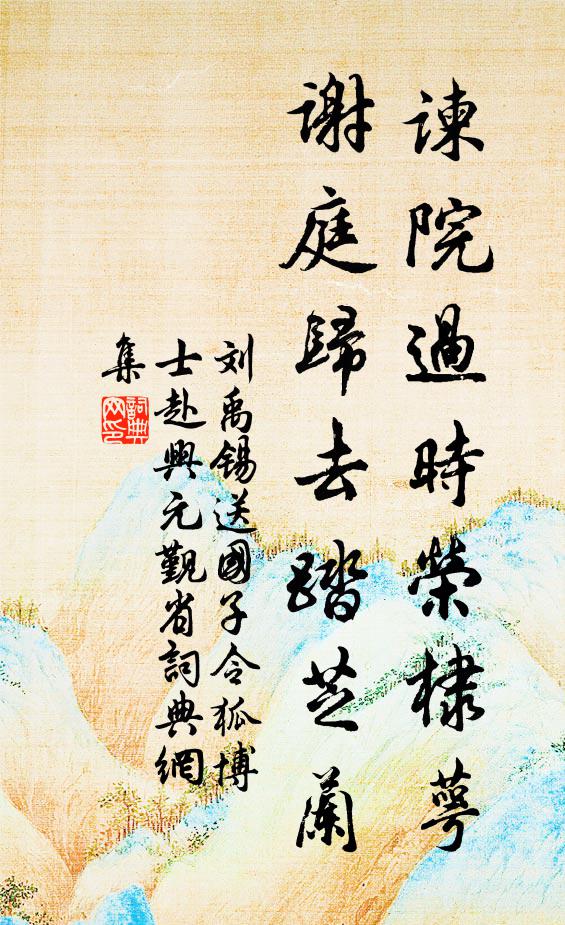 諫院過時榮棣萼
謝庭歸去踏芝蘭
刘禹锡送國子令狐博
士赴興元覲省詞典網
集
詞典
网印